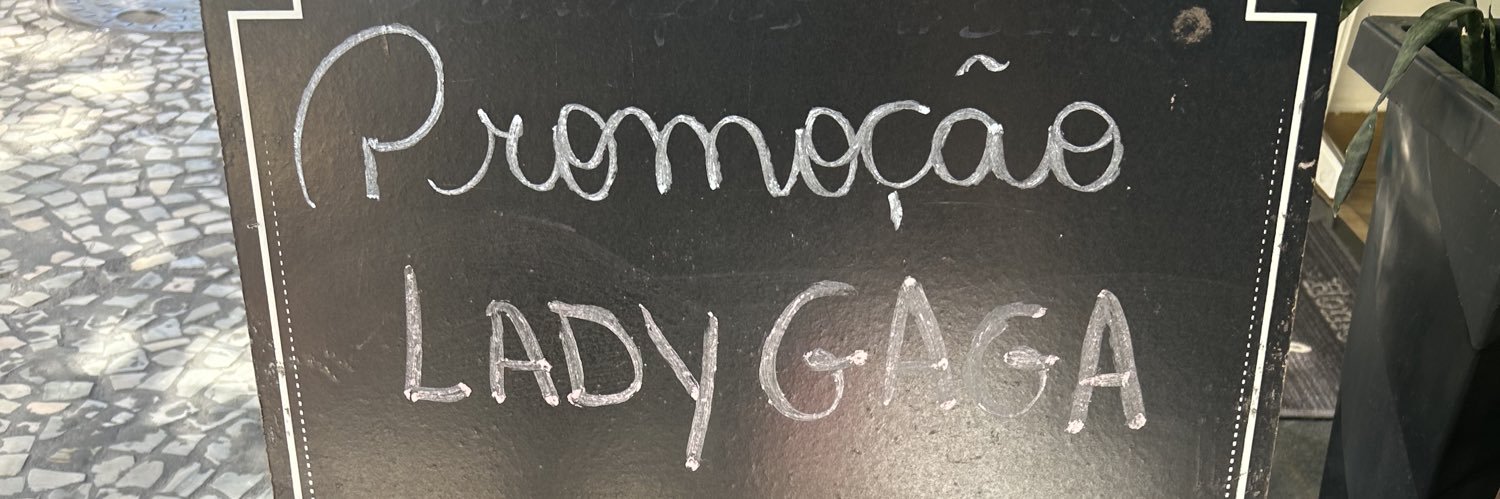 Promoção
LADY GAGA